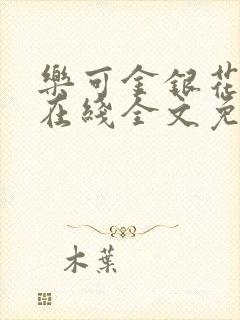 樂可金銀花
在綫全文免
木葉